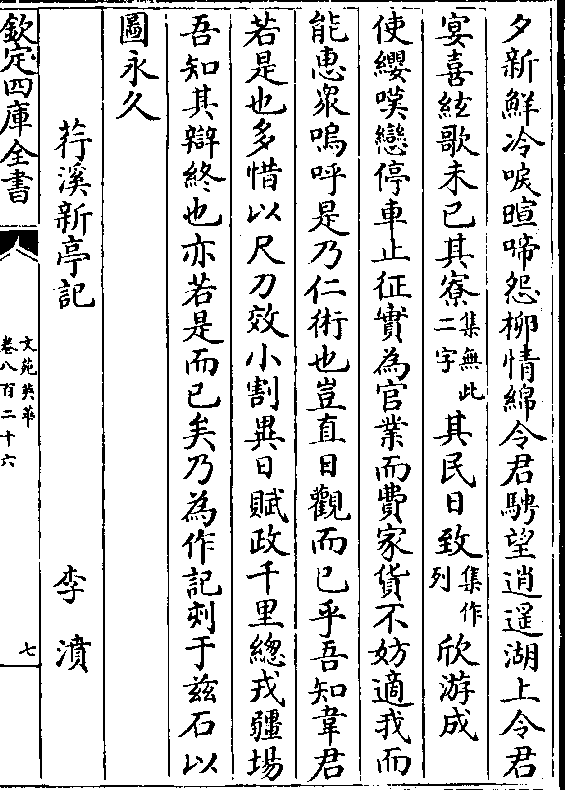 夕新鮮冷唳暄啼怨柳情綿令君騁望逍遥湖上令君
宴喜絃歌未已其寮集無此二字其民日致集作列欣游成
使纓嘆戀停車止征實為官業而費家貨不妨適我而
能惠衆嗚呼是乃仁術也豈直日觀而已乎吾知韋君
若是也多惜以尺刀效小割異日賦政千里總戎疆場
吾知其辯終也亦若是而已矣乃為作記刻于兹石以
圖永久
荇溪新亭記 李濆
欽定四庫全書
文苑英華
卷八百二十六
七